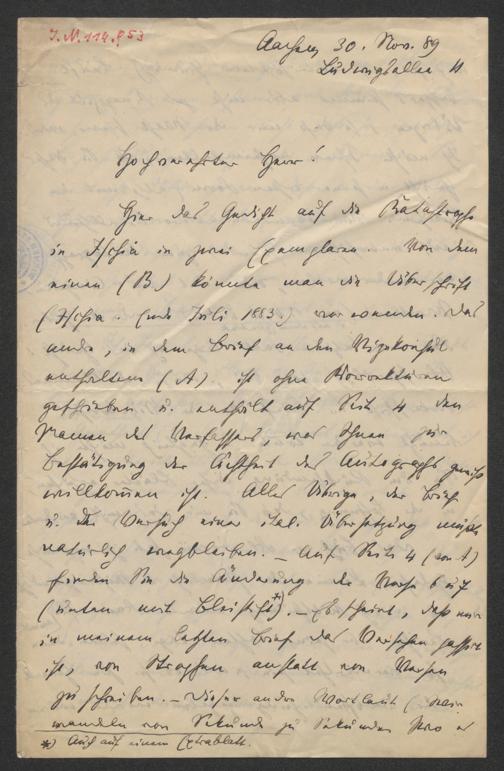 I.N. 119.853
Aachen 30. Nov. 89
Ludwigsallee 11
Hochverehrter Herr!
Hier das Gedicht auf die Katastrophe
in Ischia in zwei Exemplaren. Von dem
einen (B.) könnte man die Überschrift
(Ischia. Ende Juli 1883.) verwenden. Das
andre, in dem Brief an den Vizekonsul
enthalten (A), ist ohne Korrekturen
geschrieben u. enthält auf Seite 4 den
Namen des Verfassers, was Ihnen zur
Bestätigung der Echtheit des Autographs gewiß
willkommen ist. Alles Übrige, der Brief
u. der Versuch einer ital. Übersetzung müßte
natürlich wegbleiben. – Auf Seite 4 (von A)
finden Sie die Änderung der Verse 6 u 7
(unten mit Bleistift*). – Es scheint, daß mir
in meinem letzten Brief das Versehen passirt
ist, von Strophen anstatt von Versen
zu schreiben. – Dieser andre Wortlaut (:
wandeln von Sekunde zu Sekunde
*) Auch auf einem Extrablatt.